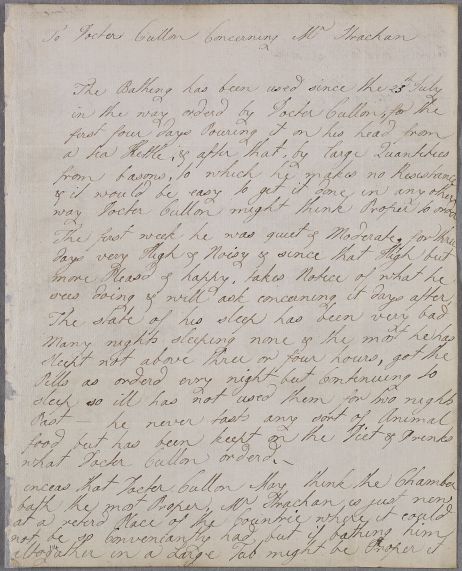 To Docter Cullon Concerning Mr Strachan
The Bathing has been used since the 23th July
in the way orderd by Docter Cullon, for the
first four days Pouring it on his head from
a tea Kettle, & after that, by large Quanteties
from basons, to which he makes no Resistance
& it would be easy to get it done in any other
way Docter Cullon might think Proper to order
The first week he was quiet & Moderate, for three
days very High & Noisy & since that High but
more Pleasd & happy, takes Notice of what he
sees doing & will ask concerning it days after,
The state of his sleep has been very bad
Many nights sleeping none & the most he has
sleept not above three or four hours, got the
Pills as orderd evry night but Continuing to
sleep so ill has not used them for two nights
Past — he never tasts any sort of Animal
food but has been keept on the Diet & Drinks
what Docter Cullon orderd
inceas that Docter Cullon May think the Chamber
bath the most Proper, Mr Strachan is just now
at a retird Place of the Countrie where it could
not be so Conveniantly had, but if bathing him
altogather in a Large Tub might be Proper it